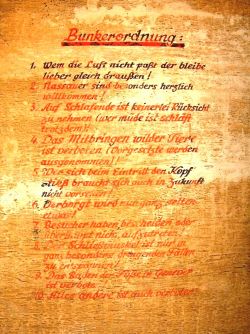 Bunkerordnung:
1. Wem die Luft nicht paßt der bleibe
lieber gleich draußen!
2. Nassauer sind besonders herzlich
willkommen!
3. Auf Schlafende ist keinerlei Rücksicht
zu nehmen (wer müde ist schläft
trotzdem)
4. Das Mitbringen wilder Tiere
ist verboten (Vorgesetzte werden
ausgenommen)!
5. Wer sich beim Eintritt den Kopf
stößt braucht sich auch in Zukunft
nicht vorsehen!
6. Verborgt wird nur ganz selten
etwas!
7. Besucher haben bescheiden oder
überhaupt nicht aufzutreten!
8. Der Schließmuskel ist nur in
ganz besonders dringenden Fällen
zu
9. Das Baden der Füße
ist verboten.
10. Alles andere ist auch verboten!